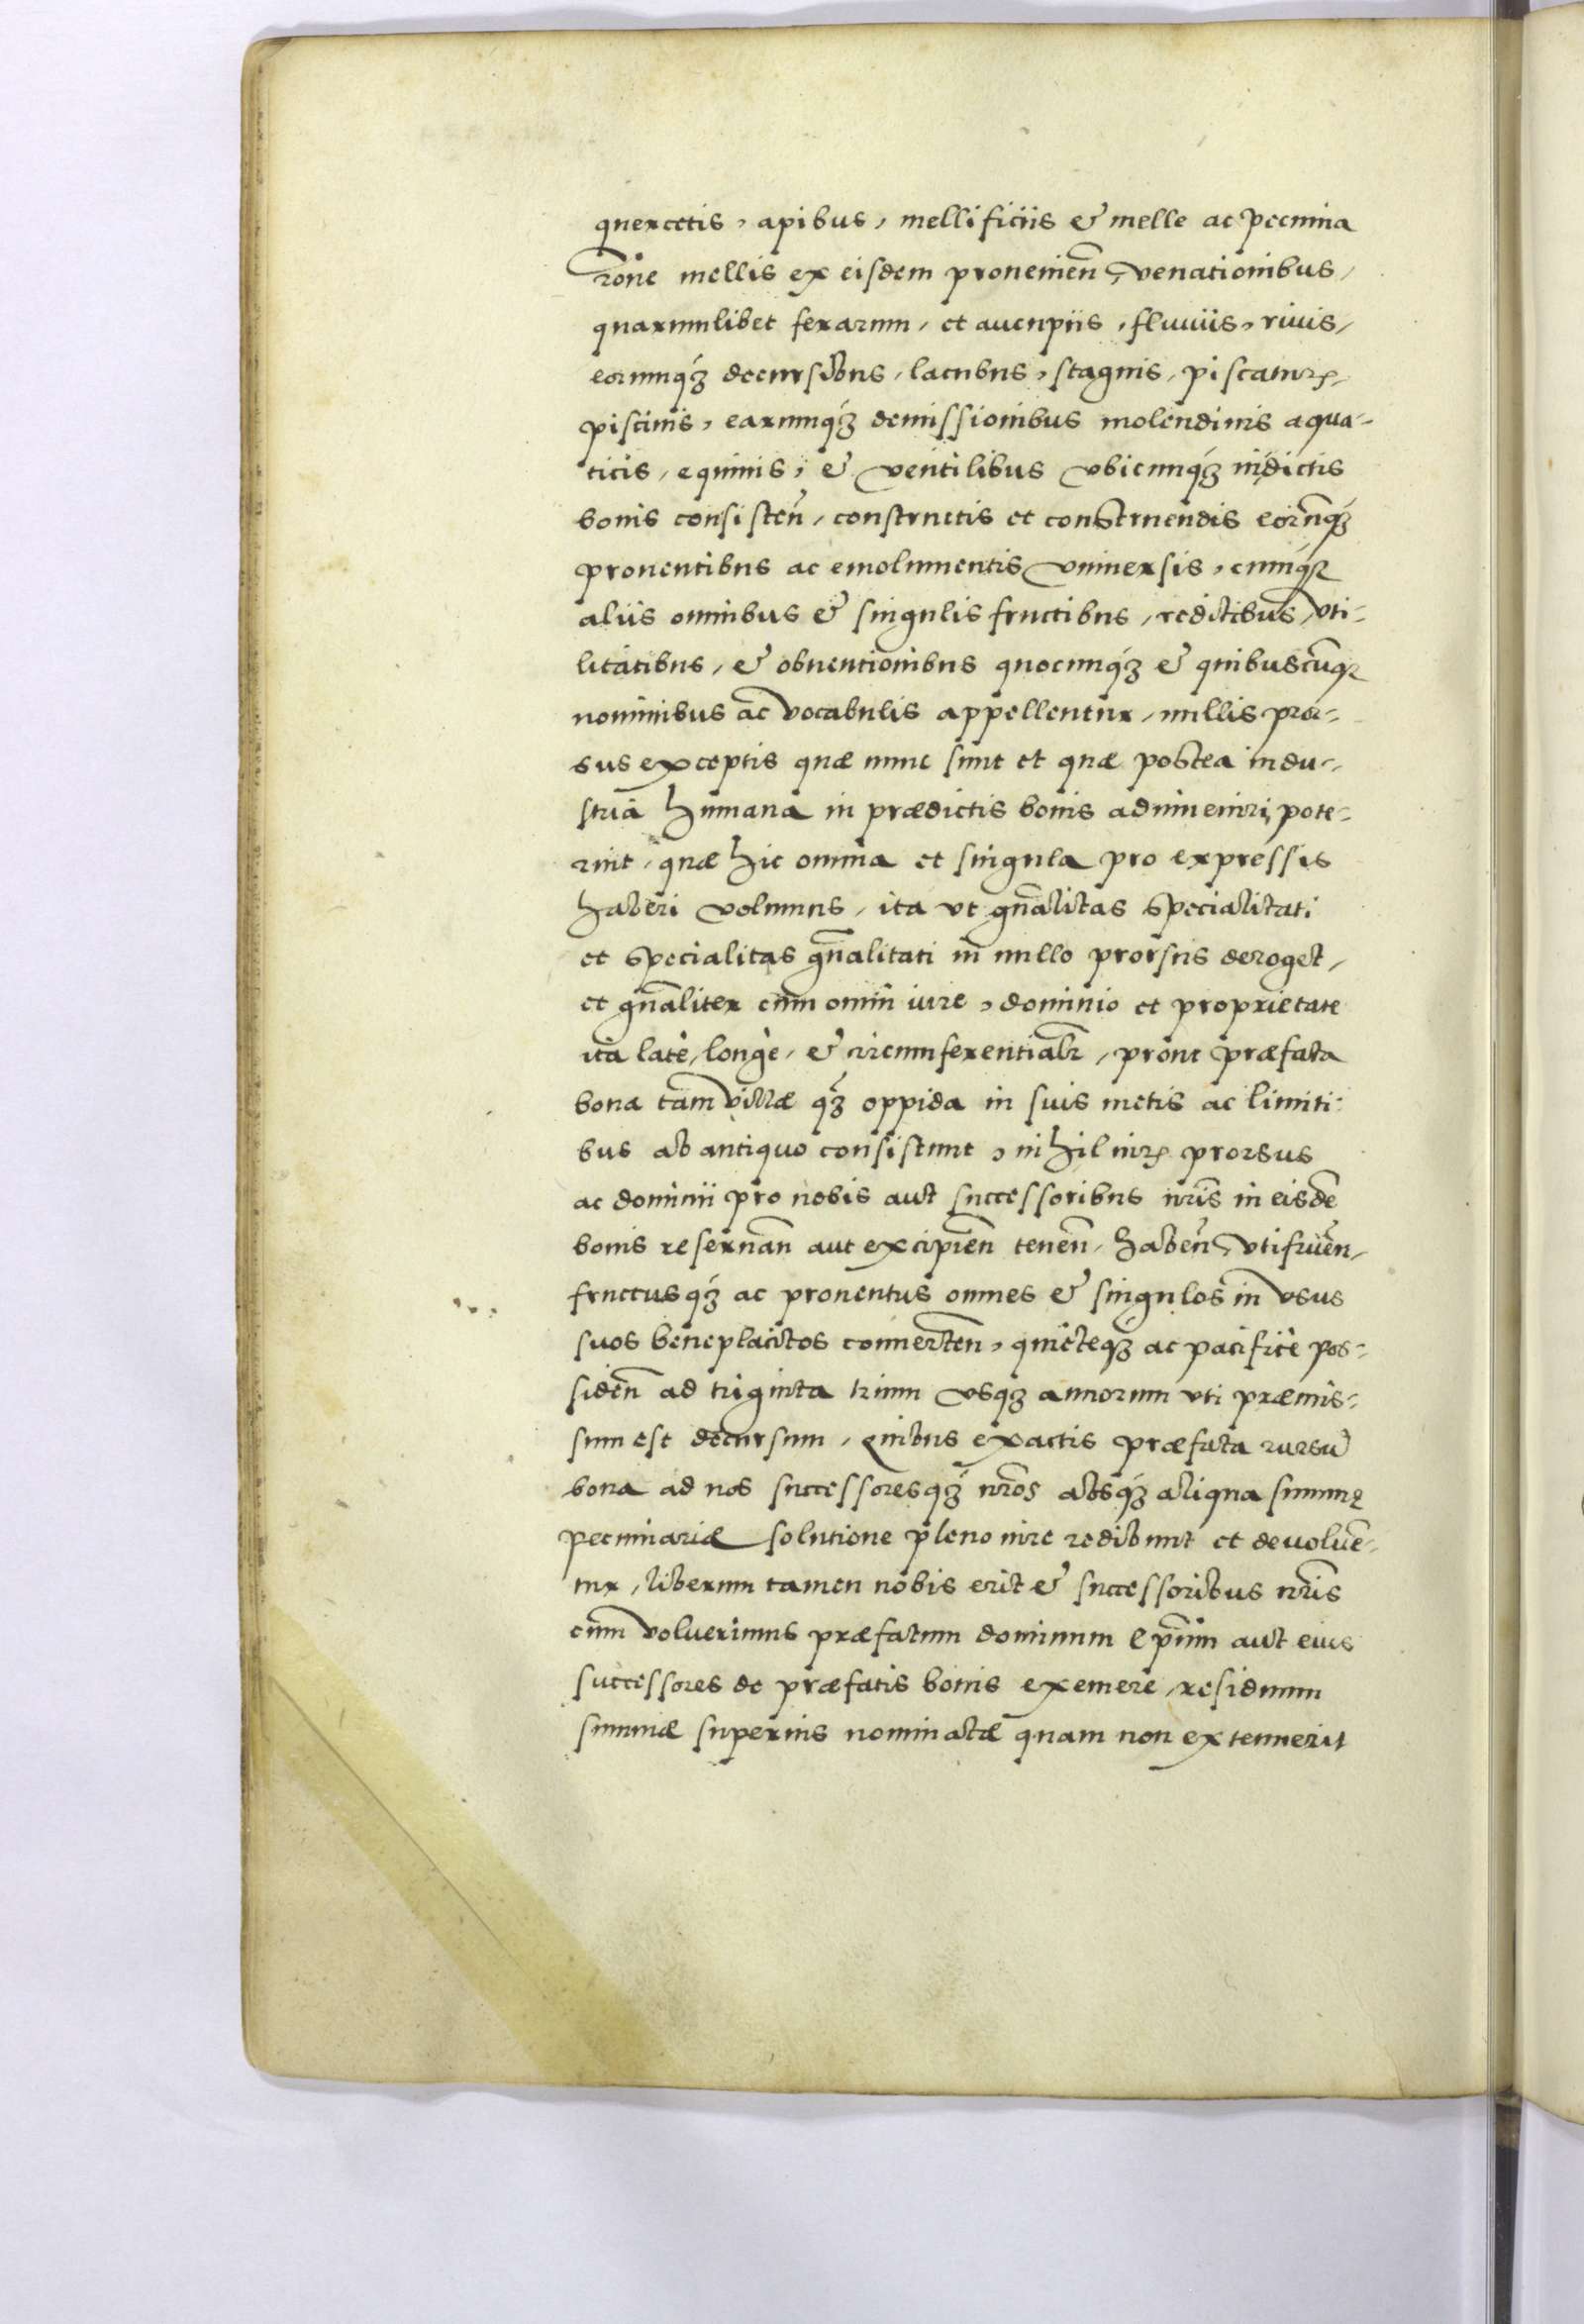 quercetis, apibus, mellificiis & melle ac pecunia
rōne mellis ex eisdem prouenieñ, venationibus,
quarumlibet ferarum, et aucupiis, fluuiis, riuis,
eorumq́ꝫ decursibus, lacubus, stagnis, piscaturꝭ,
piscinis, earumq́ꝫ demissionibus molendinis aqua-
ticis, equinis, & ventilibus vbicunq́ꝫ in dictis
bonis consisteñ, constructis et construendis eorūnq́ꝫ
prouentibus ac emolumentis vniuersis, cumq́ꝫ
aliis omnibus & singulis fructibus, reditibus, vti-
litatibus, & obuentionibus quocunq́ꝫ & quibuscūqꝫ
nominibus ac vocabulis appellentur, nullis pror-
sus exceptis quæ nunc sunt et quæ postea indu-
stria humana in prædictis bonis adinueniri pote-
runt, quæ hic omnia et singula pro expressis
haberi volumus, ita vt gn̄alitas specialitati
et specialitas gn̄alitati in nullo prorsus deroget,
et gn̄aliter cum omni iure, dominio et proprietate
ita latè, longè, & circumferentialr̄, prout præfata
bona tam villæ q́ꝫ oppida in suis metis ac limiti-
bus ab antiquo consistunt, nihil iurꝭ prorsus
ac dominii pro nobis aut successoribus nr̄is in eisdē
bonis reseruañ aut excipieñ teneñ, habeñ, vtifrueñ,
fructusq́ꝫ ac prouentus omnes & singulos in vsus
suos beneplacitos conuerteñ, quieteqꝫ ac pacificè pos-
sideñ ad triginta trium vsqꝫ annorum vti præmis-
sum est decursum, quibus exactis præfata rursū
bona ad nos successoresq́ꝫ nr̄os absq́ꝫ aliqua summę
pecuniariæ solutione pleno iure redibunt et deuoluē-
tur, liberum tamen nobis erit & successoribus nr̄is
cum voluerimus præfatum dominum ep̄um aut eius
successores de præfatis bonis exemere, residuum
summæ superius nominatæ quam non extenuerit